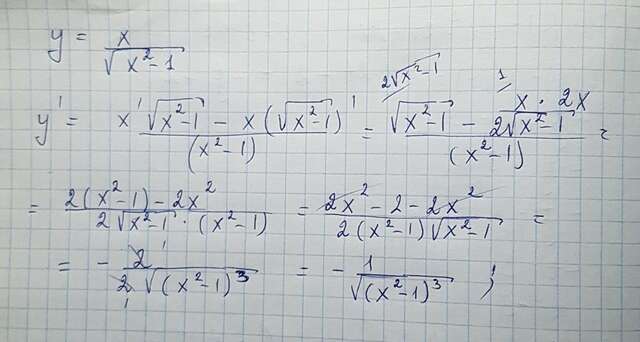 y = x / √(x²-1)
y' = (x'√(x²-1) - x(√(x²-1))') / (x²-1) = (√(x²-1) - (x · 2x) / (2√(x²-1))) / (x²-1) =
= (2(x²-1) - 2x²) / (2√(x²-1) · (x²-1)) = (2x² - 2 - 2x²) / (2(x²-1)√(x²-1)) =
= - 2 / (2√((x²-1)³)) = - 1 / √((x²-1)³) ;